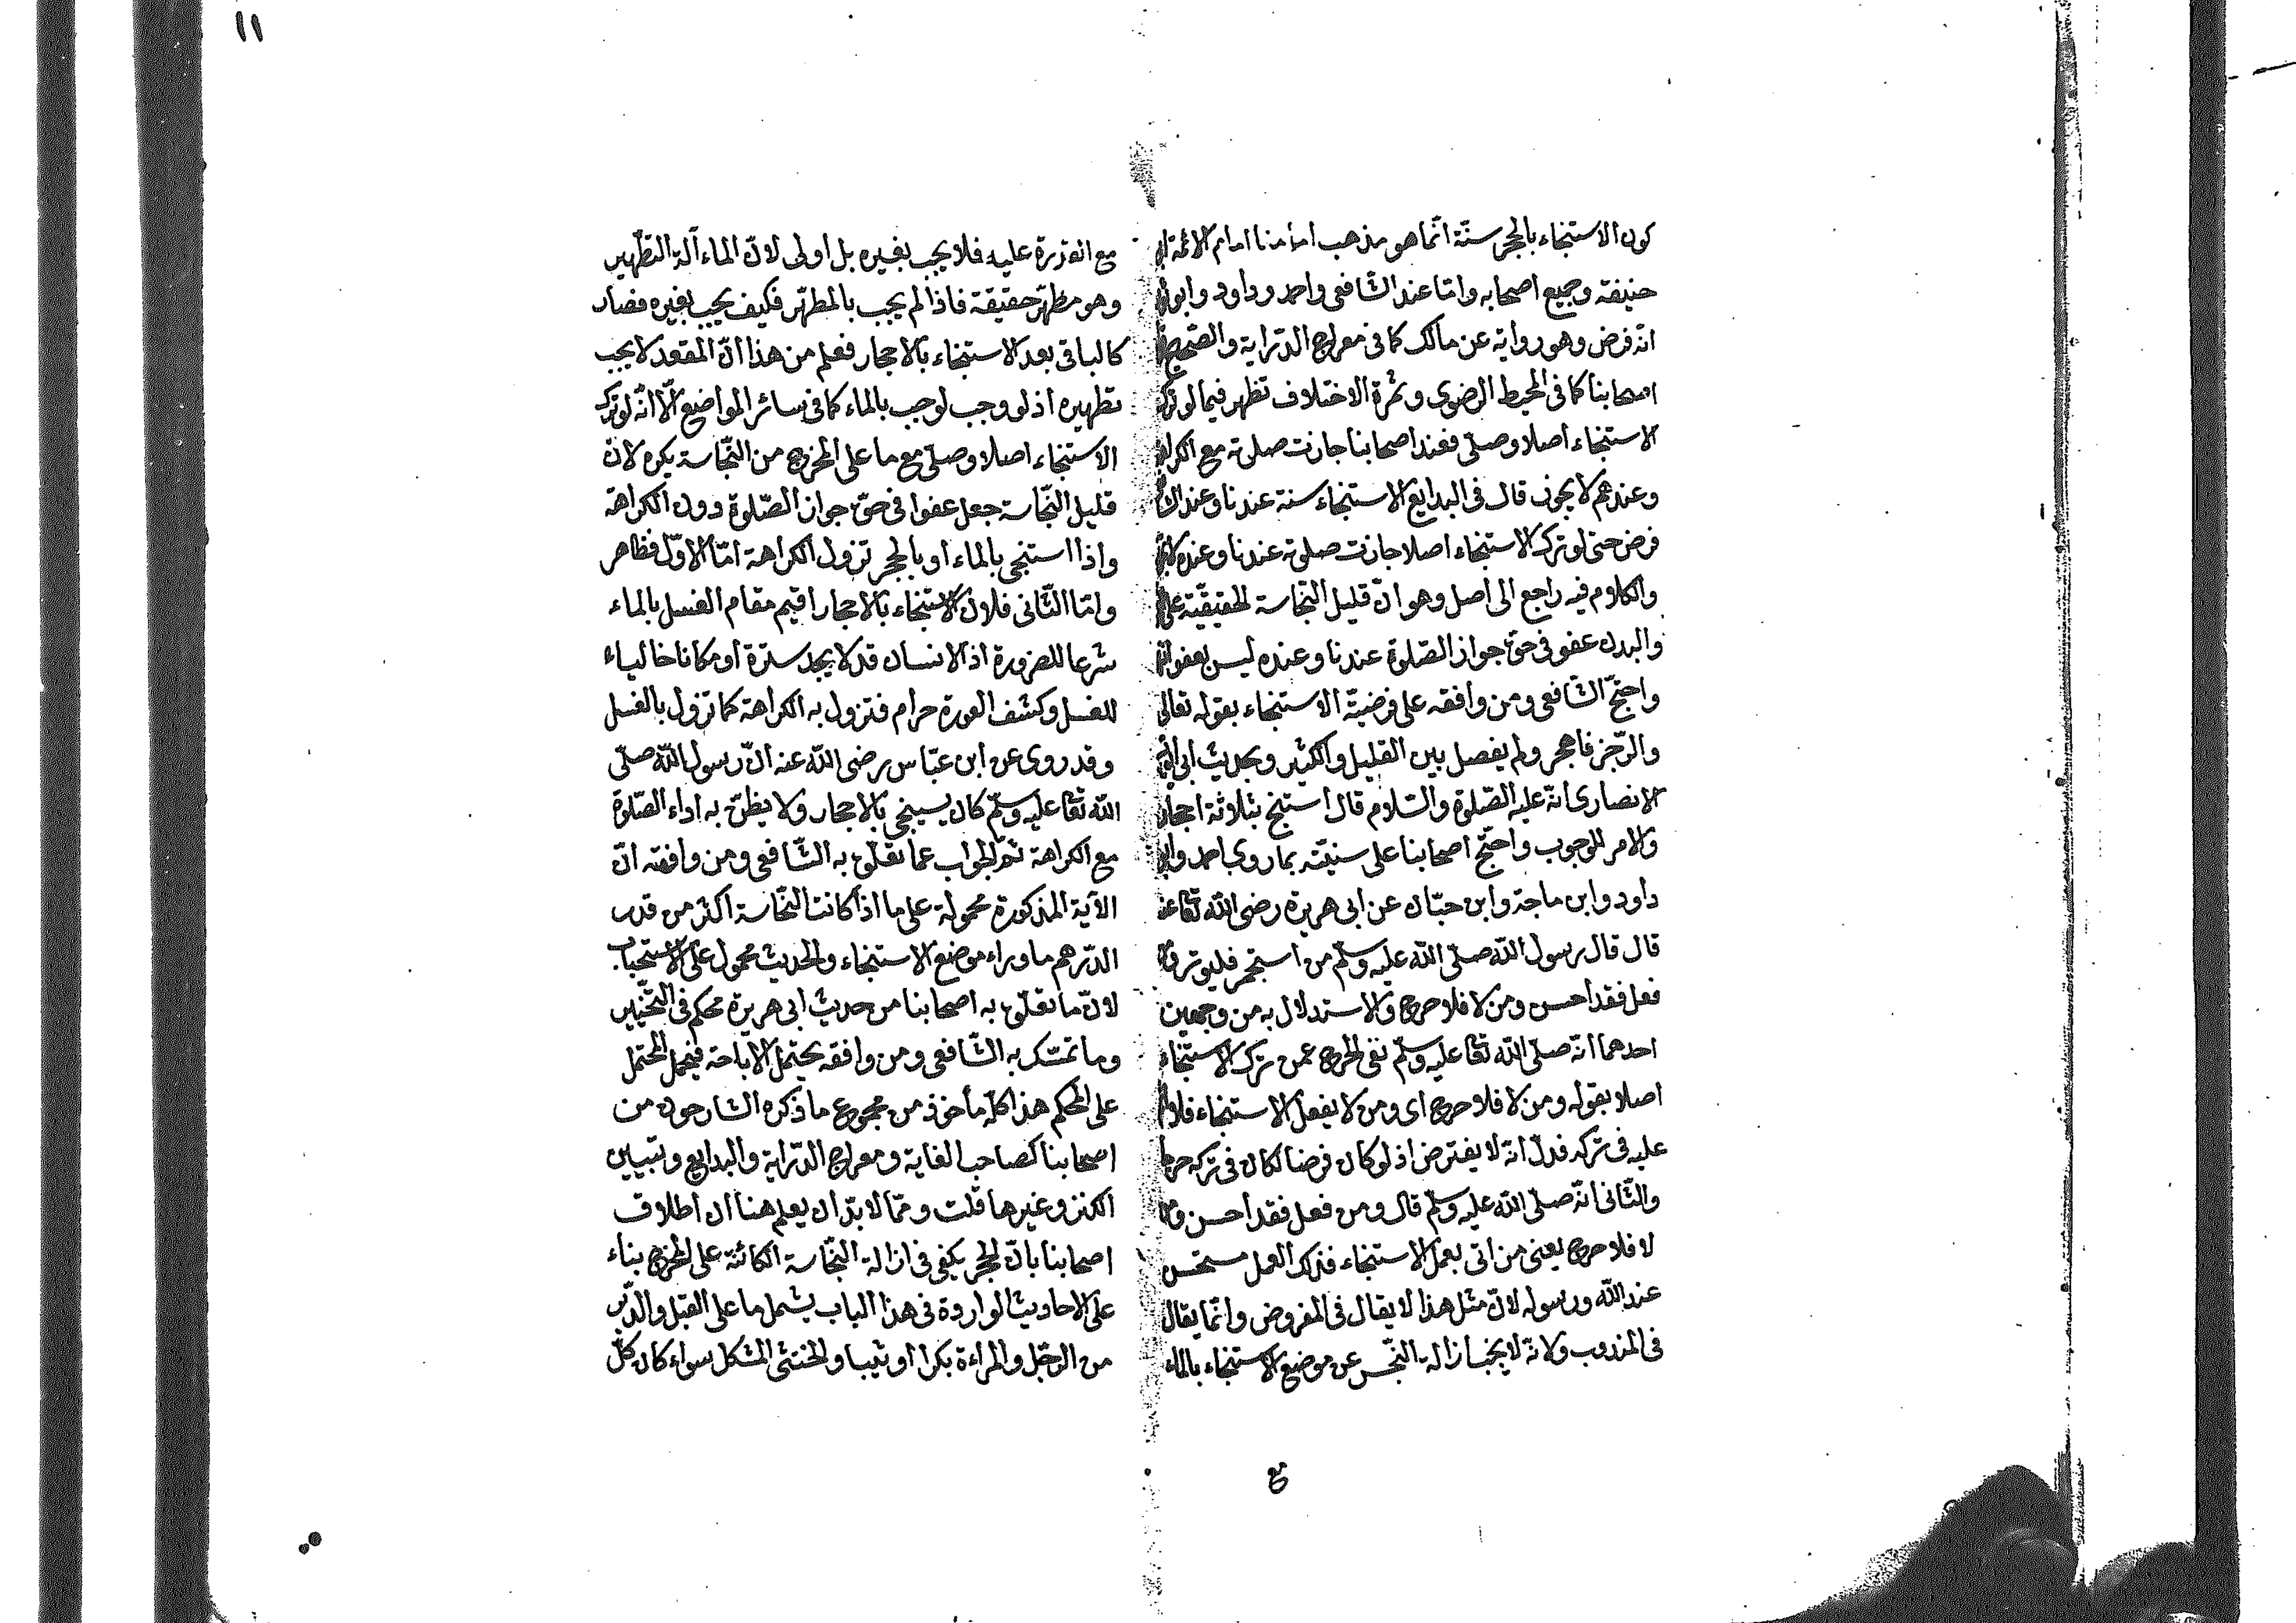 ١١
كون الاستنجاء بالحجر سنّة انّما هو مذهب امامنا امام الائمة ابى
حنيفة وجميع اصحابه وامّا عند الشافعى واحمد وداود وابو
انّه فرض وهو رواية عن مالك كما فى معراج الدّراية والصّحيح
اصحابنا كما فى المحيط الرضوى وثمرة الاختلاف تظهر فيما لو ترك
الاستنجاء اصلا وصلّى فعند اصحابنا جازت صلوته مع الكراهة
وعندهم لا يجوز قال فى البدايع الاستنجاء سنة عندنا وعند
فرض حتى لو ترك الاستنجاء اصلا جازت صلوته عندنا وعنده لا
والكلام فيه راجع الى اصل وهو انّ قليل النّجاسة الحقيقيّة على
والبدن عفو فى حقّ جواز الصّلوة عندنا وعنده ليس بعفو
واحتجّ الشّافعى ومن وافقه على فرضيّة الاستنجاء بقوله تعالى
والرّجز فاهجر ولم يفصل بين القليل والكثير وبحديث ابى
الانصارى انّه عليه الصّلوة والسّلام قال استنج بثلاثة احجار
والامر للوجوب واحتجّ اصحابنا على سنيّته بما روى احمد وابو
داود وابن ماجة وابن حبّان عن ابى هريرة رضى الله تعا عنه
قال قال رسول الله صلّى الله عليه وسلّم من استجمر فليوتر
فعل فقد احسن ومن لا فلا حرج والاستدلال به من وجهين
احدهما انّه صلّى الله تعا عليه وسلّم نفى الحرج عمن ترك الاستنجاء
اصلا بقوله ومن لا فلا حرج اى ومن لا يفعل الاستنجاء فلا
عليه فى تركه فدلّ انّه لا يفترض اذ لو كان فرضا لكان فى تركه حرجا
والثّانى انّه صلّى الله عليه وسلّم قال ومن فعل فقد احسن
لا فلا حرج يعنى من اتى بعمل الاستنجاء فذلك العمل مستحسن
عند الله ورسوله لانّ مثل هذا لا يقال فى المفروض وانّما يقال
فى المندوب ولانّه لا يجب ازالة النّجس عن موضع الاستنجاء بالماء
مع القدرة عليه فلا يجب بغيره بل اولى لانّ الماء آلة التطهير
وهو مطهّر حقيقة فاذا لم يجب بالمطهّر فكيف يجب بغيره فصار
كالباقى بعد الاستنجاء بالاحجار فعلم من هذا انّ المقعد لا يجب
تطهيره اذ لو وجب لوجب بالماء كما فى سائر المواضع الّا انّه لو ترك
الاستنجاء اصلا وصلّى مع ما على المخرج من النّجاسة يكره لانّ
قليل النّجاسة جعل عفوا فى حقّ جواز الصّلوة دون الكراهة
واذا استنجى بالماء او بالحجر تزول الكراهة امّا الاوّل فظاهر
وامّا الثّانى فلانّ الاستنجاء بالاحجار اقيم مقام الغسل بالماء
شرعا للضرورة اذ الانسان قد لا يجد سترة او مكانا خاليا
للغسل وكشف العورة حرام فتزول به الكراهة كما تزول بالغسل
وقد روى عن ابن عبّاس رضى الله عنه انّ رسول الله صلّى
الله تعا عليه وسلّم كان يستنجى بالاحجار ولا يظنّ به اداء الصّلوة
مع الكراهة ثمّ الجواب عما تعلّق به الشّافعى ومن وافقه انّ
الآية المذكورة محمولة على ما اذا كانت النّجاسة اكثر من قدر
الدّرهم ما وراء موضع الاستنجاء والحديث محمول على الاستحباب
لانّ ما تعلّق به اصحابنا من حديث ابى هريرة محكم فى التّخيير
وما تمسّك به الشّافعى ومن وافقه يحتمل الاباحة فيحمل المحتمل
على المحكم هذا كلّه مأخوذ من مجموع ما ذكره الشارحون من
اصحابنا كصاحب الغاية ومعراج الدّراية والبدايع وتبيين
الكنز وغيرها قلت وممّا لا بدّ ان يعلم هنا ان اطلاق
اصحابنا بانّ الحجر يكفى فى ازالة النّجاسة الكائنة على المخرج بناء
على الاحاديث الواردة فى هذا الباب يشمل ما على القبل والدّبر
من الرّجل والمراءة بكرا او ثيبا والخنثى المشكل سواء كان كلّ
مع